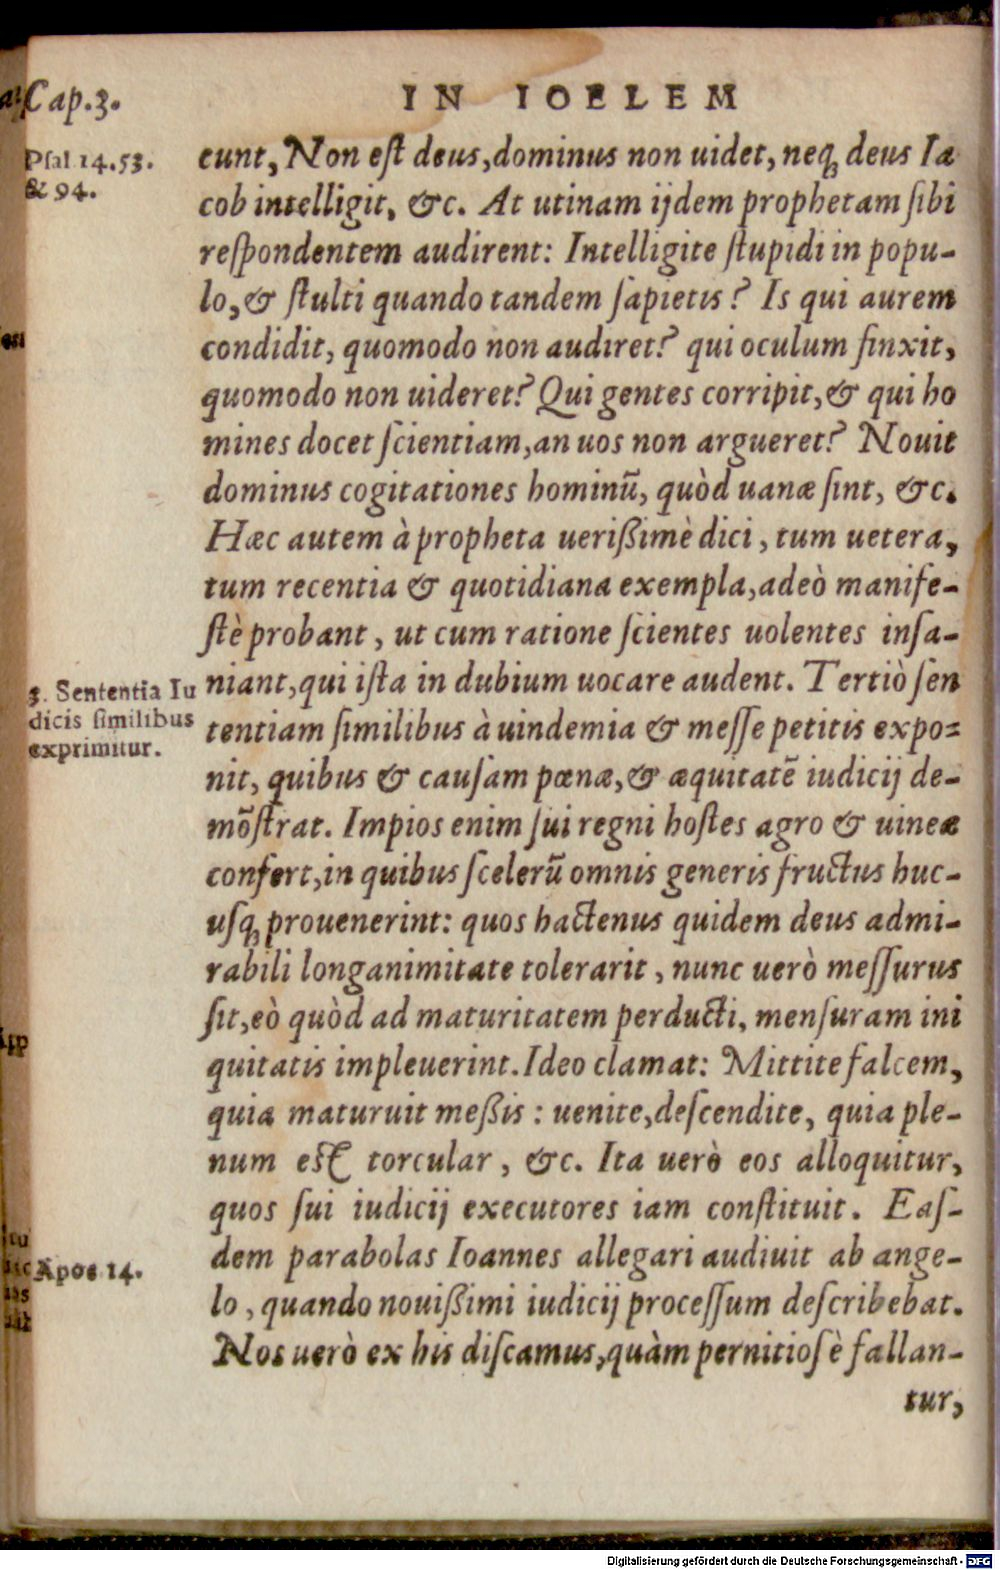 Cap.3.
IN IOELEM
Psal 14.53.
& 94.
cunt, Non est deus, dominus non uidet, neq́; deus Ia
cob intelligit, &c. At utinam ijdem prophetam sibi
respondentem audirent: Intelligite stupidi in popu-
lo, & stulti quando tandem sapietis? Is qui aurem
condidit, quomodo non audiret? qui oculum finxit,
quomodo non uideret? Qui gentes corripit, & qui ho
mines docet scientiam, an uos non argueret? Nouit
dominus cogitationes hominũ, quòd uanæ sint, &c.
Hæc autem à propheta uerißimè dici, tum uetera,
tum recentia & quotidiana exempla, adeò manife-
stè probant, ut cum ratione scientes uolentes insa-
niant, qui ista in dubium uocare audent. Tertiò sen
3. Sententia Iu
dicis similibus
exprimitur.
tentiam similibus à uindemia & messe petitis expo-
nit, quibus & causam pœnæ, & æquitatẽ iudicij de-
mõstrat. Impios enim sui regni hostes agro & uineæ
confert, in quibus scelerũ omnis generis fructus huc-
usq; prouenerint: quos hactenus quidem deus admi-
rabili longanimitate tolerarit, nunc uerò messurus
sit, eò quòd ad maturitatem perducti, mensuram ini
quitatis impleuerint. Ideo clamat: Mittite falcem,
quia maturuit meßis: uenite, descendite, quia ple-
num est torcular, &c. Ita uerò eos alloquitur,
quos sui iudicij executores iam constituit. Eas-
dem parabolas Ioannes allegari audiuit ab ange-
Apoc 14.
lo, quando nouißimi iudicij processum describebat.
Nos uerò ex his discamus, quàm pernitiosè fallan-
tur,
Digitalisierung gefördert durch die Deutsche Forschungsgemeinschaft - DFG